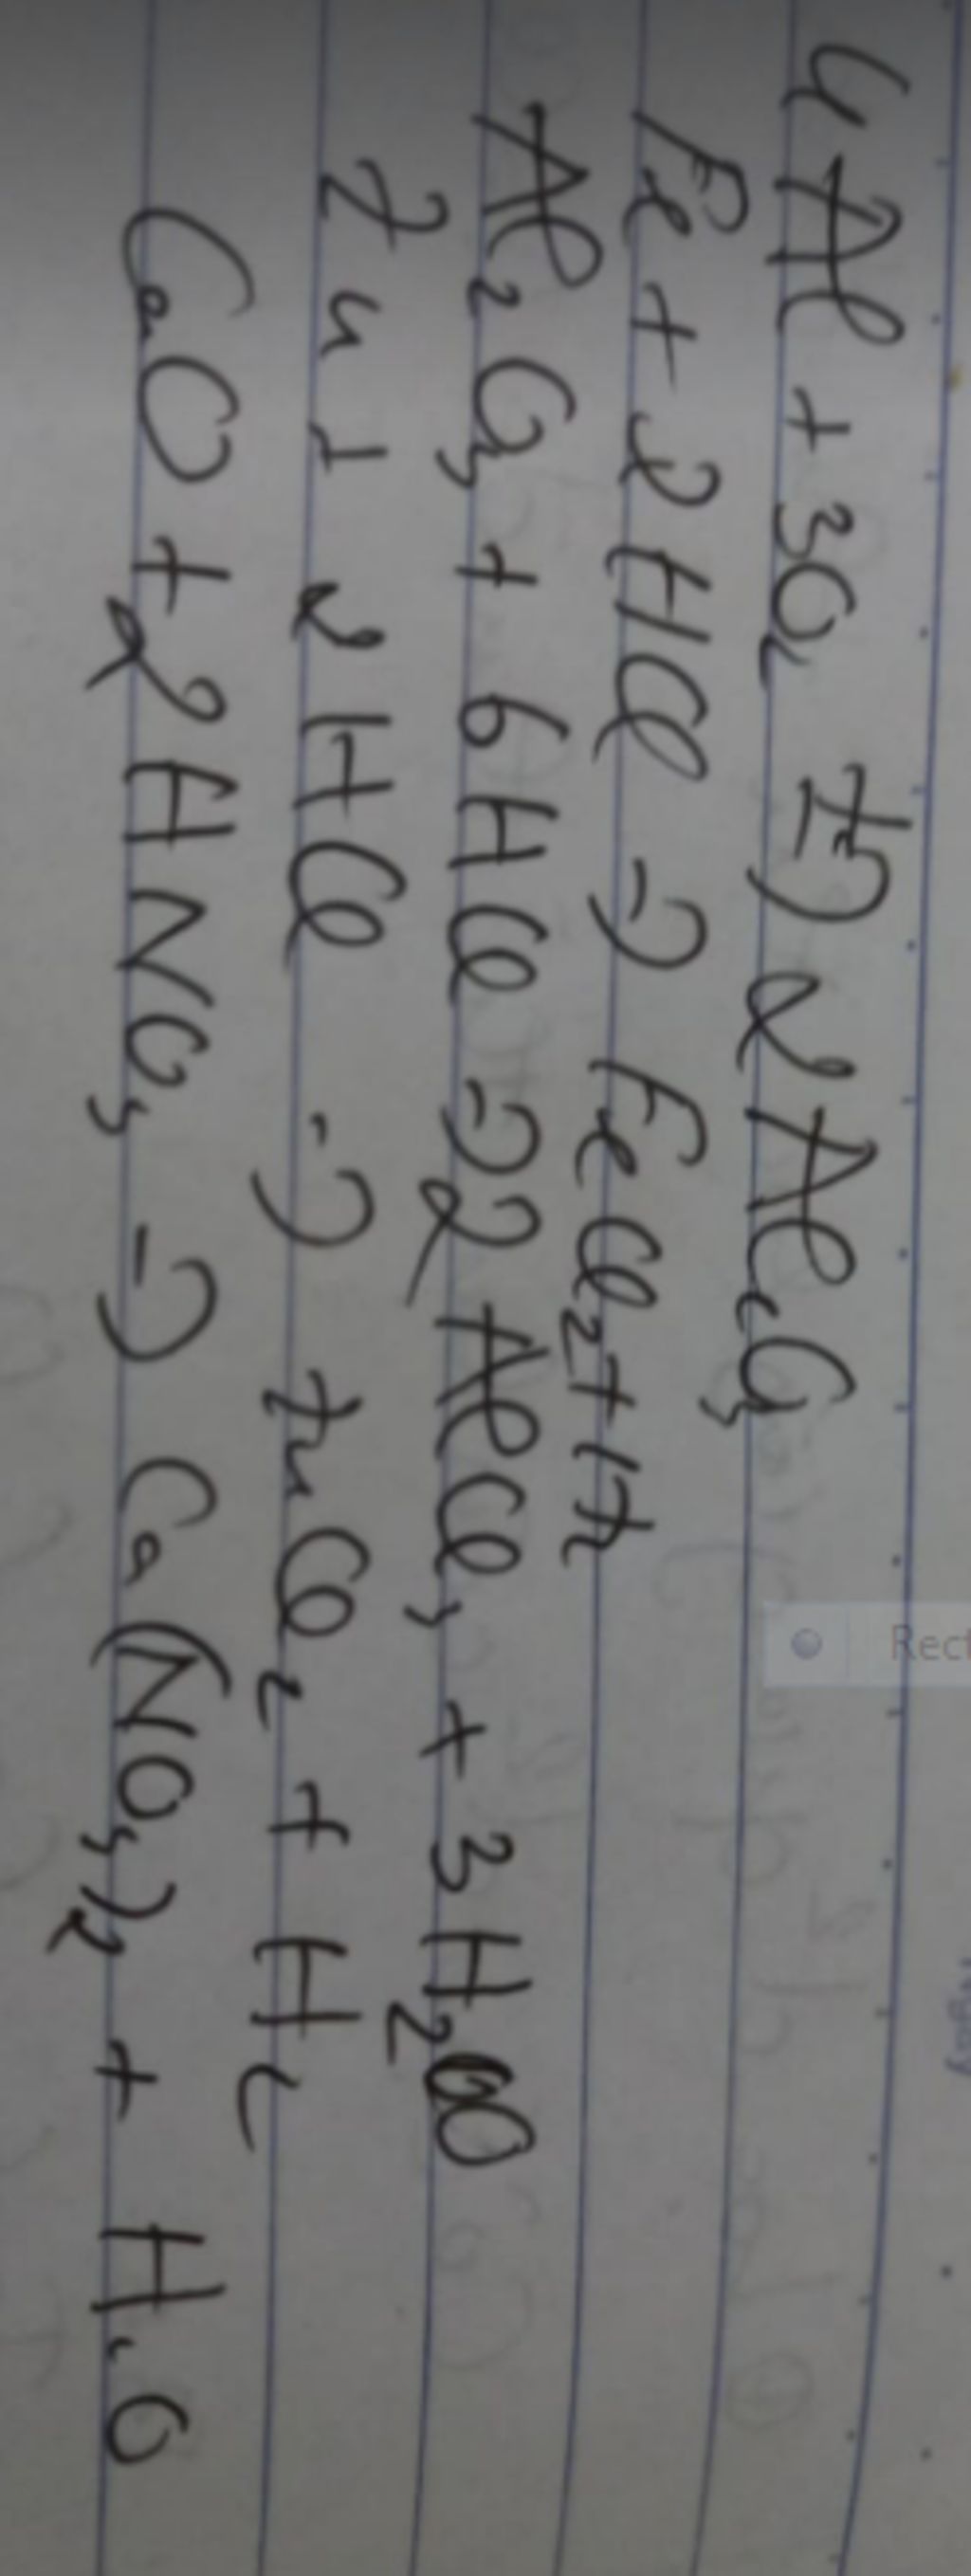 4Al + 3O2 t°→ 2Al2O3
Fe + 2HCl → FeCl2 + H2
Al2O3 + 6HCl → 2AlCl3 + 3H2O
Zn + 2HCl → ZnCl2 + H2
CaO + 2HNO3 → Ca(NO3)2 + H2O
Rect